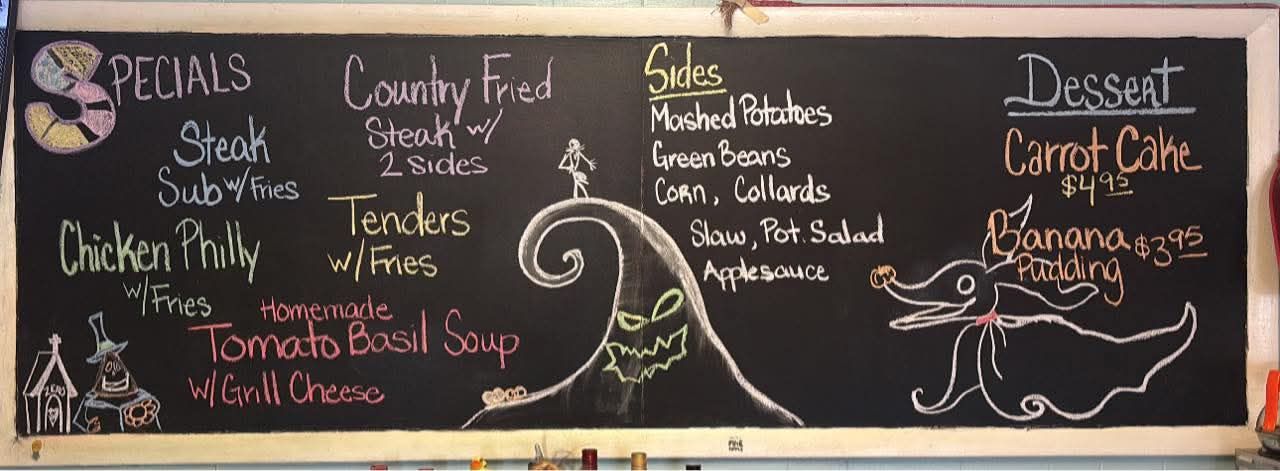 SPECIALS
Steak
Sub w/Fries
Chicken Philly
w/Fries
Country Fried
Steak w/
2 sides
Tenders
w/Fries
Homemade
Tomato Basil Soup
w/Grill Cheese
ZERO
Sides
Mashed Potatoes
Green Beans
Corn, Collards
Slaw, Pot. Salad
Applesauce
Dessert
Carrot Cake
$4.95
Banana $3.95
Pudding